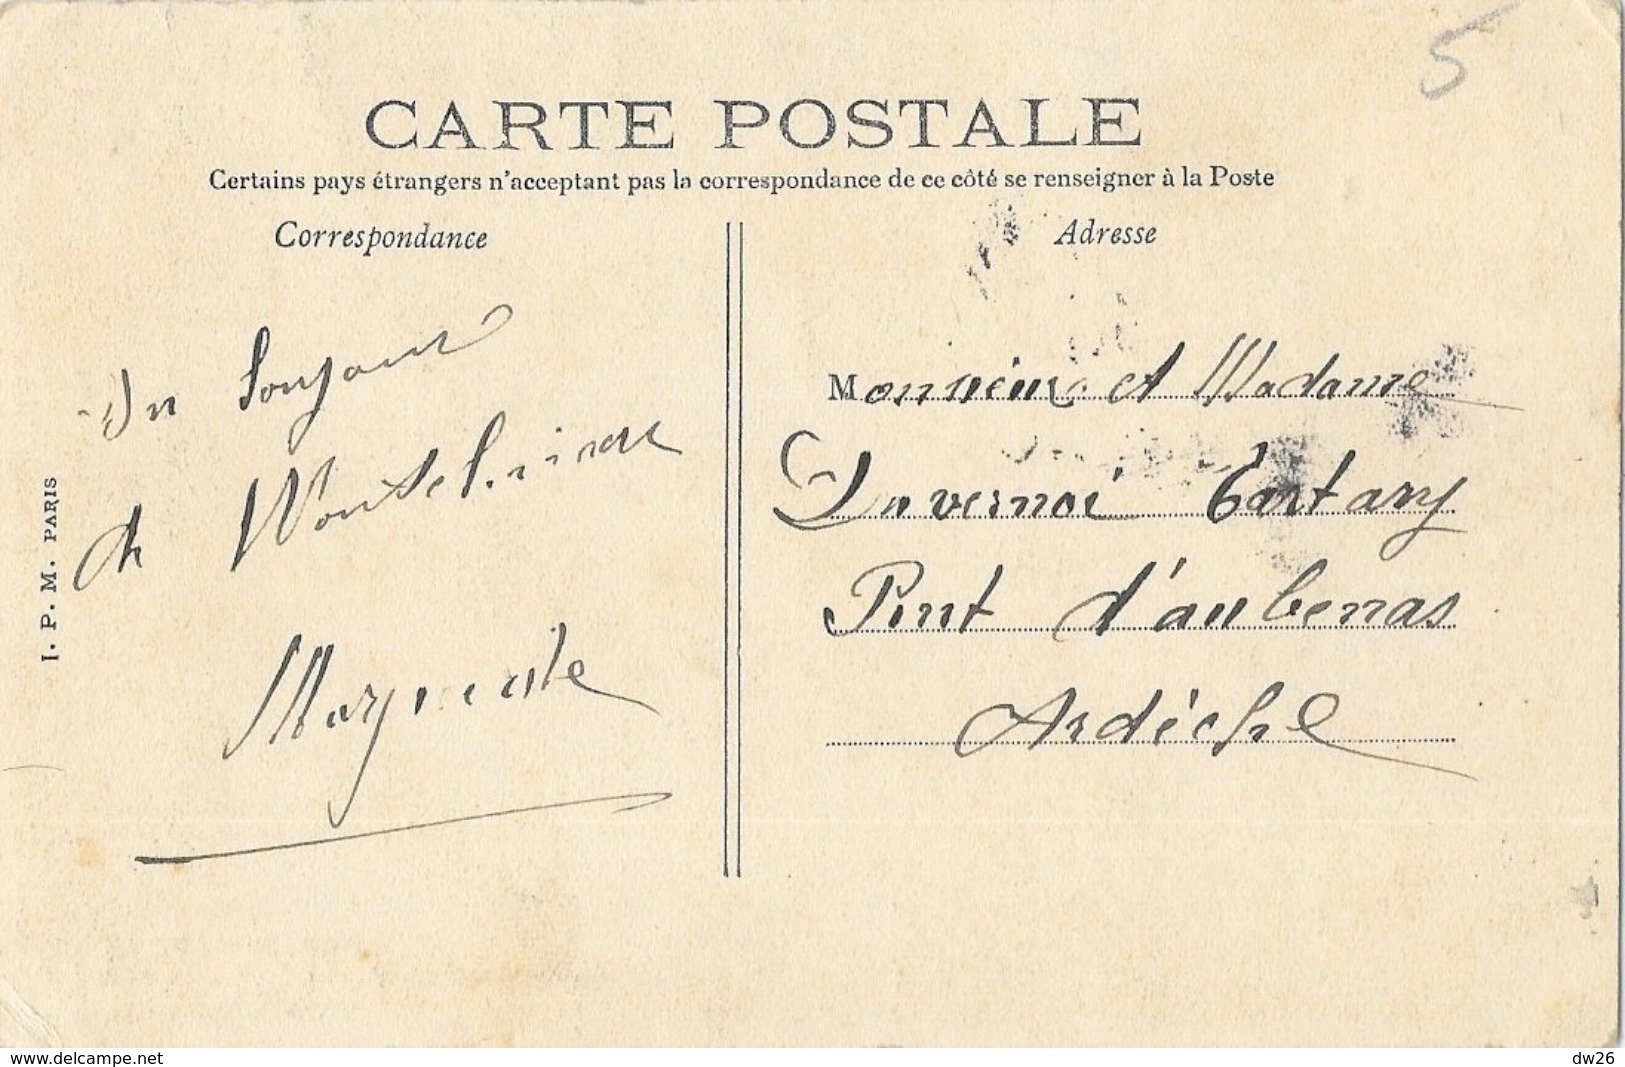 5
CARTE POSTALE
Certains pays étrangers n'acceptent pas la correspondance de ce côté se renseigner à la Poste
Correspondance
Adresse
Un bonjour
de Montelimar
Marguerite
Monsieur et Madame
Duvernoi Tastary
Pont d'aubenas
Ardèche
I. P. M. PARIS
www.delcampe.net
dw26